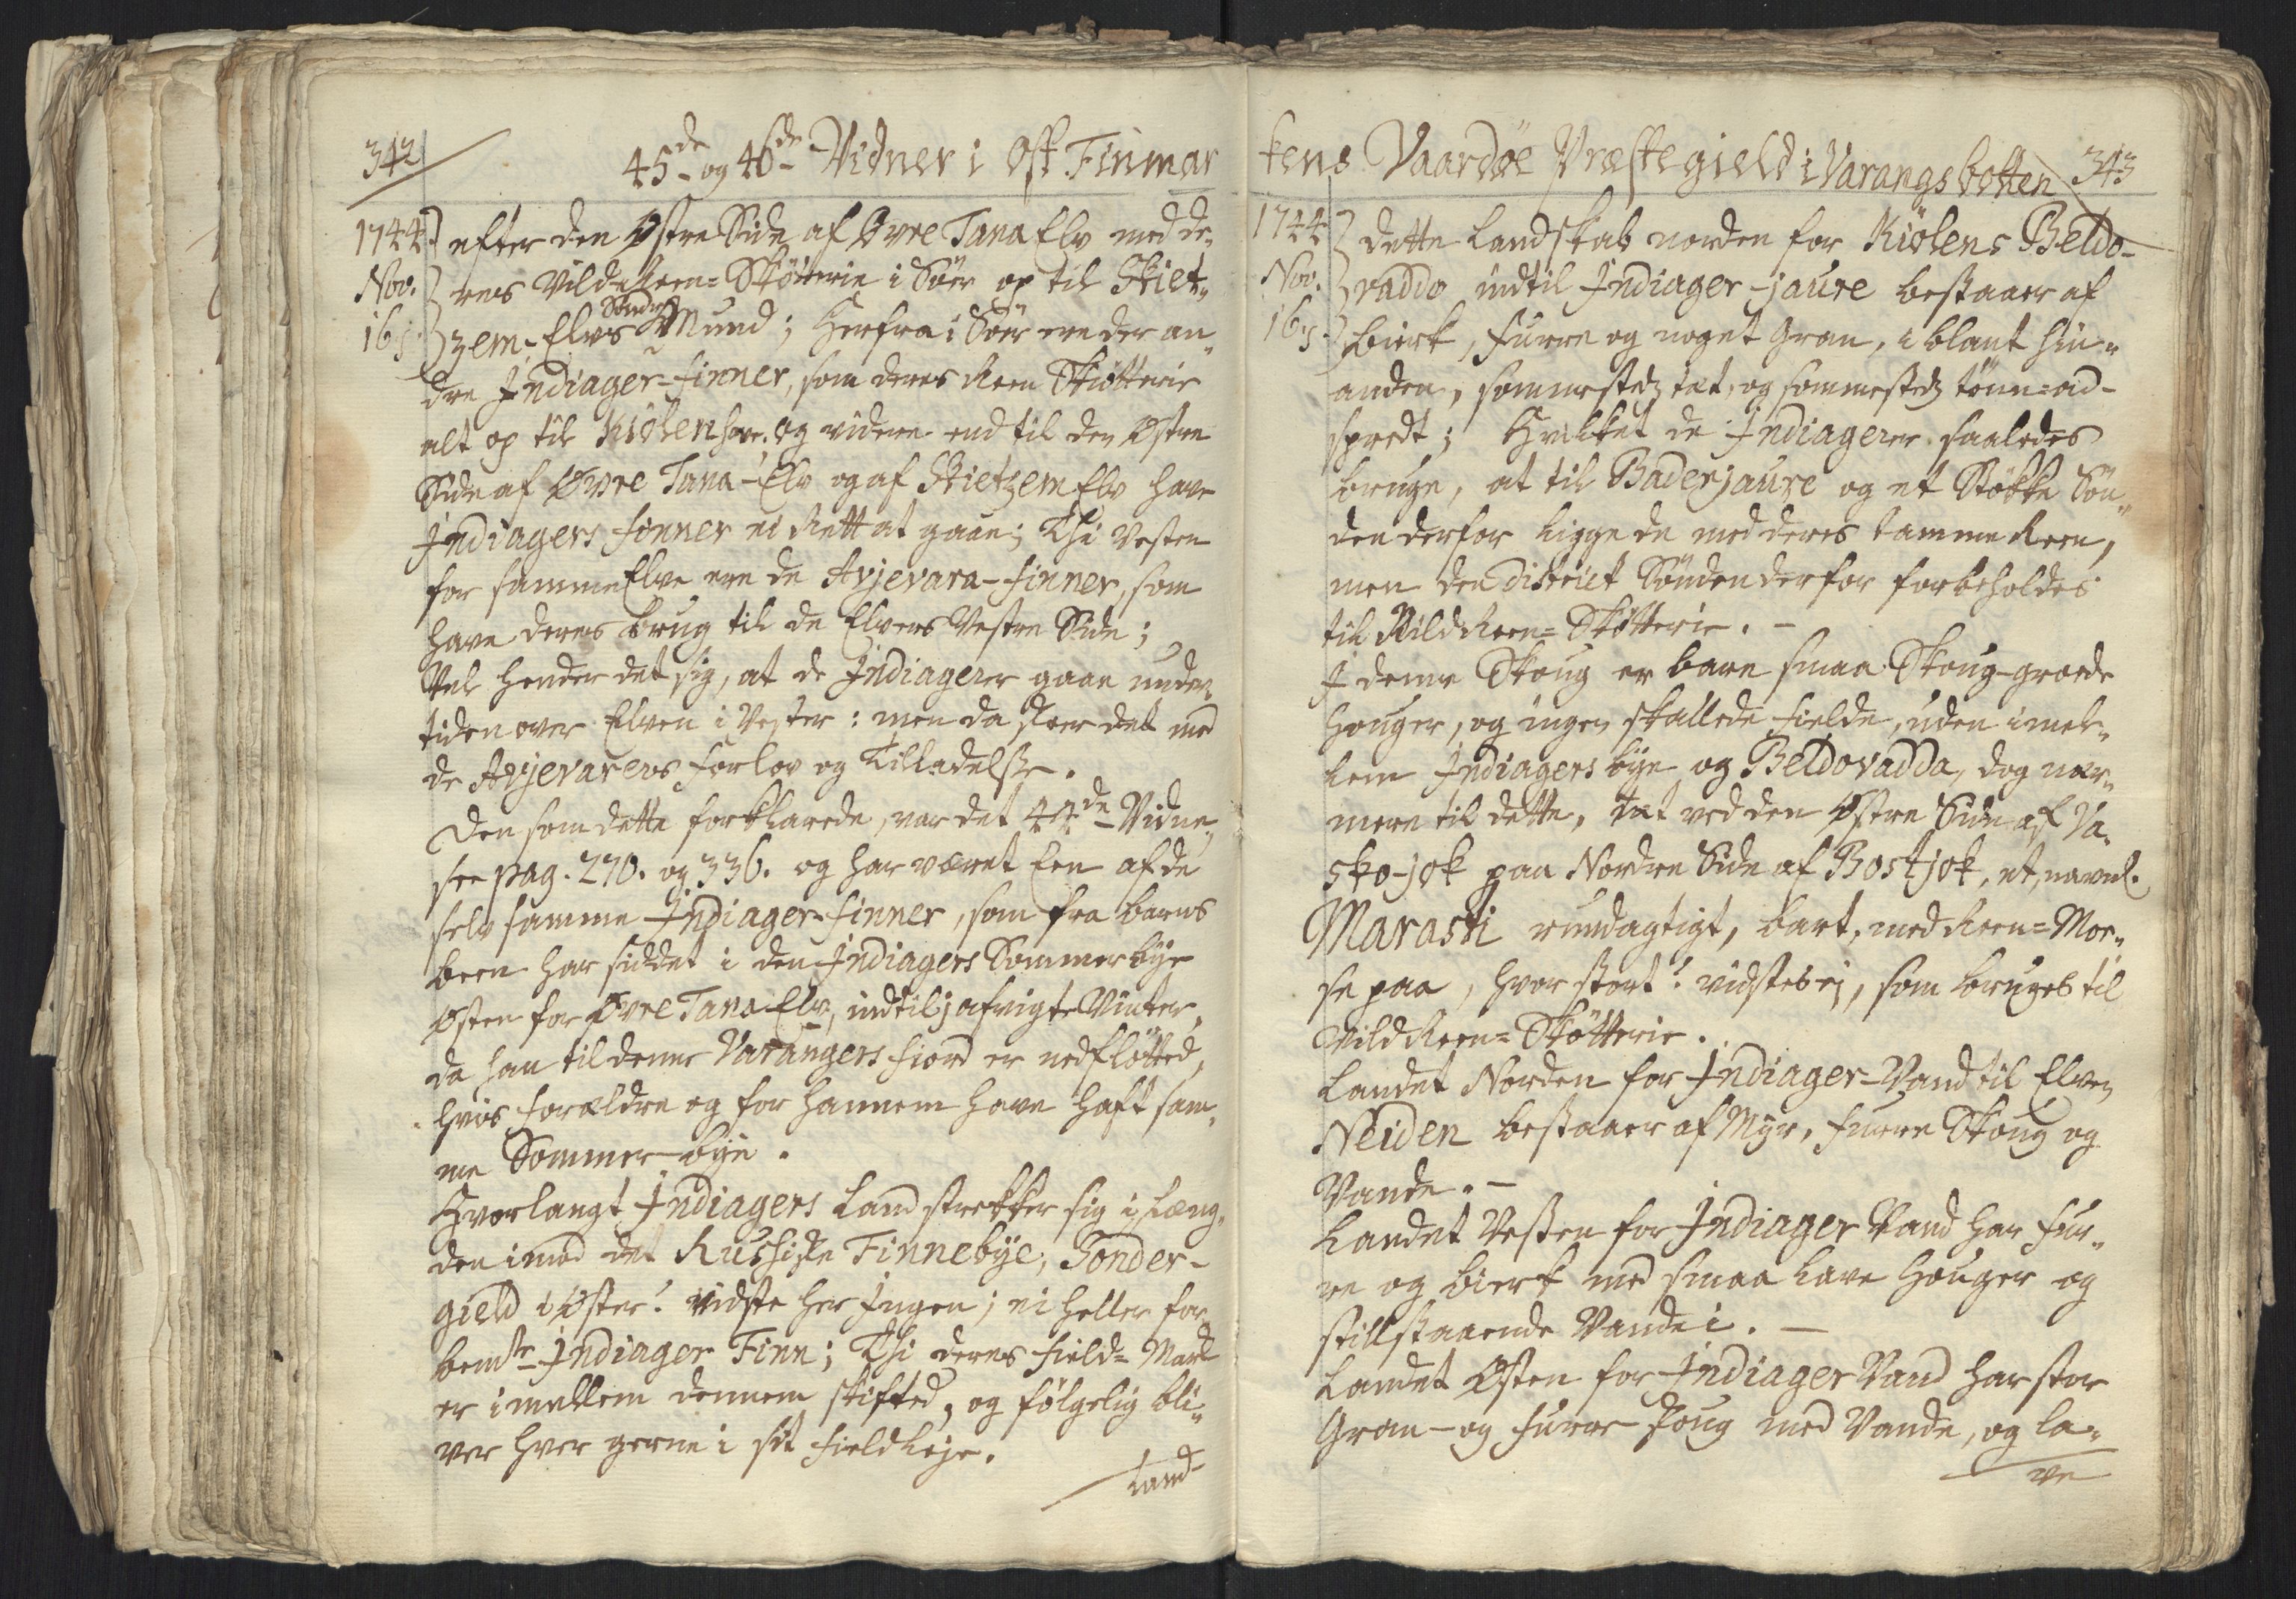 342
45de og 46de Vidner i Ost Finmar
1744
Nov.
16 j.
efter den Østre Side af Øvre Tana Elv med de¬
res Vild-Reen-Skötterie i Söer op til Skiet¬
Søndre
zem-Elvs Mund; Herfra i Söer ere der an¬
dre Indiager-finner, som deres Reen Skötterie
alt op til Kiölen have. Og videre end til den Østre
Side af Øvre Tana-Elv og af Skietzem Elv have
Indiagers finner ei Rett at gaae; Thi Vesten
for samme Elve ere de Avjevara-finner, som
have deres brug til de Elvers Vestre Side;
Vel hender det sig, at de Indiagerer gaae under
tiden over Elven i Vester: men da skeer det med
de Avjevarers forlov og Tilladelse.
Den som dette forklarede, var det 44de Vidne,
see pag. 270. og 336. og har været Een af de
selv samme Indiager-finner, som fra barns
been har siddet i den Indiagers Sommerbÿe
Østen for Øvre Tana-Elv, indtil j afvigte Vinter,
da han til denne Varangers fiord er nedfløtted,
hvis forældre og for hannem have haft sam¬
me Sommer-bÿe.
Hvor langt Indiagers Land strekker sig i Læng¬
den imod det Russiske Finnebÿe, Sonder-
gield i Øster? vidste her Ingen; ei heller for¬
bemte Indiager Finn; Thi deres field-Mark
er imellem dennem skifted, og følgelig bli¬
ver hver gerne i sit fieldleje.
Land-
kens Vaardøe Præstegield i Varangsbotten
343
1744
Nov.
16 j.
dette Landskab norden for Kiölens Beldo-
vaddo indtil Indiager-jaure bestaaer af
Birk, furre og noget Gran, i blant hin¬
anden, sommestedz tæt, og sommestedz tönn-ad-
spredt; Hvilket de Indiagerer saaledes
bruge, at til Baderjaure og et Stökke Sön¬
den derfor ligge de med deres tamme Reen,
men den District Sönden derfor forbeholdes
til Vild Reen-Skötterie.-
I denne Skoug er bare smaa Skoug-groede
Houger, og ingen skallede fielde, uden imel¬
lem Indiagers bÿe og Beldovadda, dog nær¬
mere til dette, tæt ved den Østre Side af Va¬
sko-jok paa Nordre Side af Bostjok, et, navnl.
Marasti rundagtigt, bart, med Reen-Moe¬
se paa, hvor stort? vidstes ej, som bruges til
Vild Reen-Skötterie.
Landet Norden for Indiager-Vand til Elven
Neiden bestaaer af Myr, furre Skoug og
Vande.-
Landet Vesten for Indiager Vand har fur¬
re og birk med smaa lave Houger og
stillstaaende Vande i.-
Landet Østen for Indiager Vand har stor
Gran-og furre Skoug med Vande, og la¬
ve